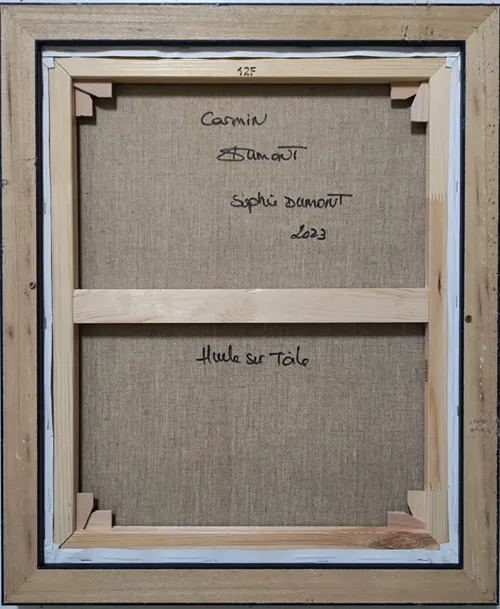 12F
Carmin
SDumont
Sophie DUMONT
2023
Huile sur Toile